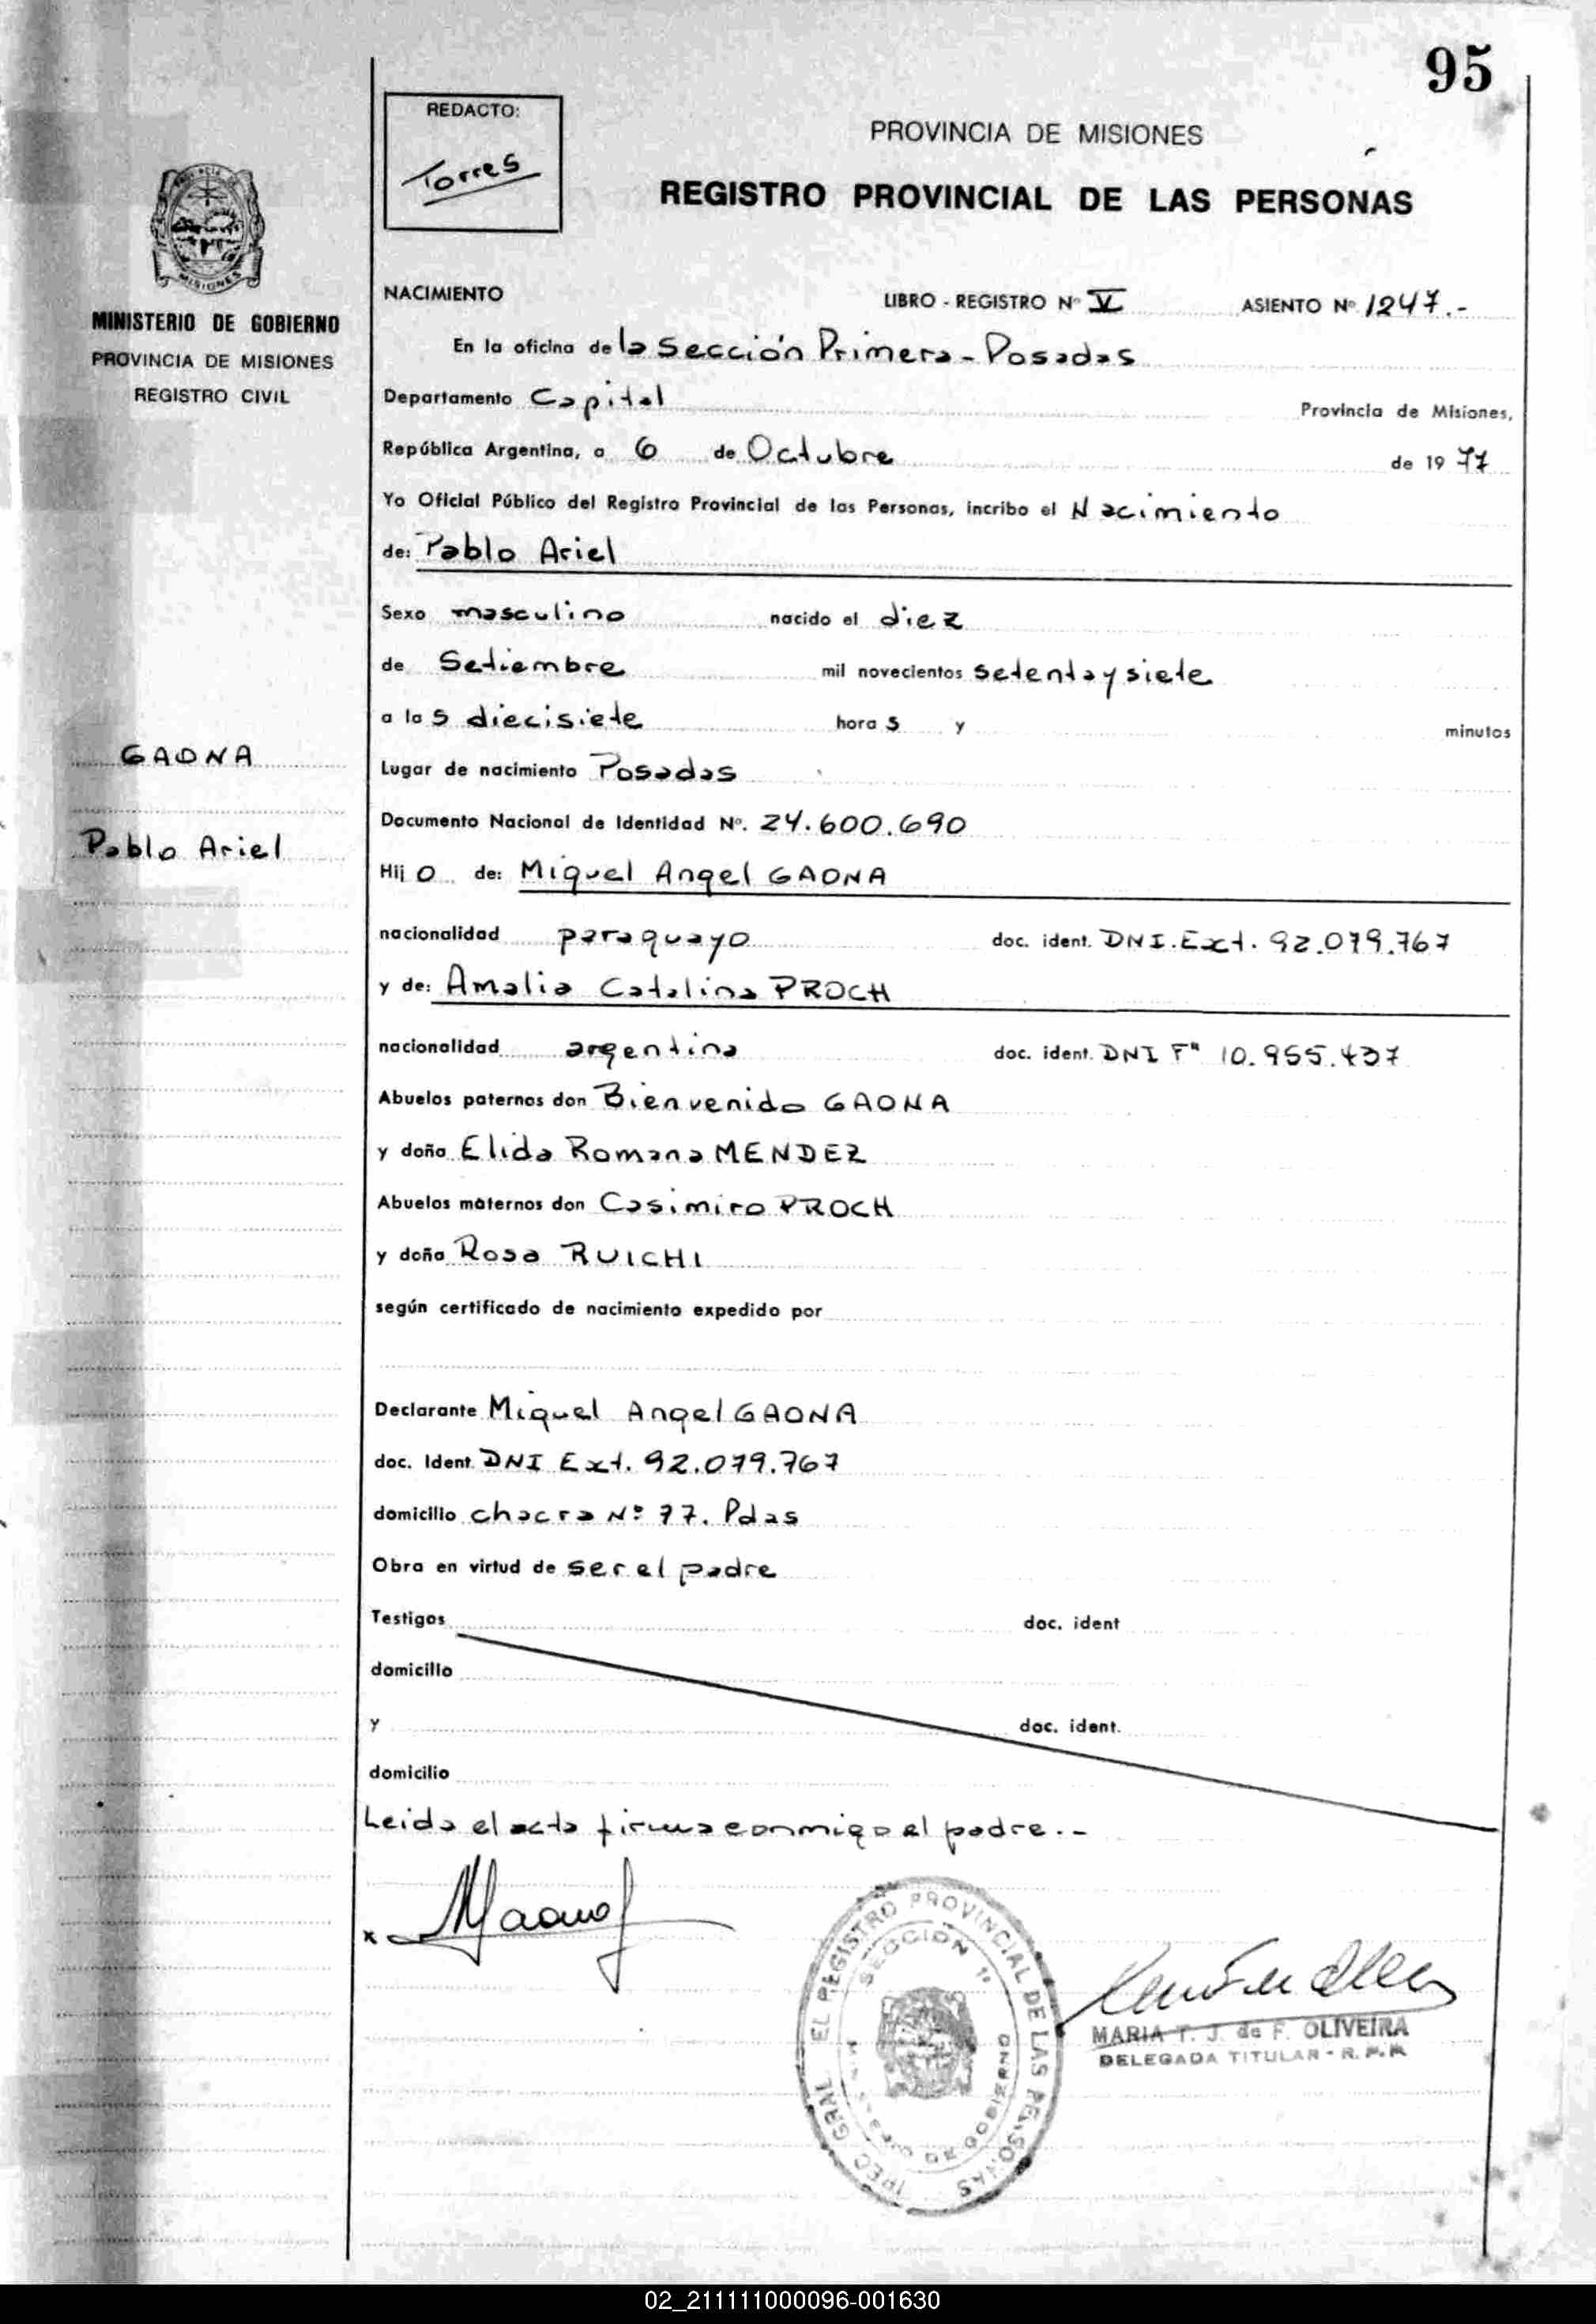 95
REDACTO:
Torres
PROVINCIA DE MISIONES
REGISTRO PROVINCIAL DE LAS PERSONAS
MISIONES
MINISTERIO DE GOBIERNO
PROVINCIA DE MISIONES
REGISTRO CIVIL
NACIMIENTO LIBRO - REGISTRO Nº V ASIENTO Nº 1247.-
En la oficina de la Sección Primera - Posadas
Departamento Capital Provincia de Misiones,
República Argentina, a 6 de Octubre de 1977
Yo Oficial Público del Registro Provincial de las Personas, incribo el Nacimiento
de: Pablo Ariel
Sexo masculino nacido el diez
de Setiembre mil novecientos setenta y siete
a las diecisiete horas y minutos
GAONA
Lugar de nacimiento Posadas
Documento Nacional de Identidad Nº. 24.600.690
Pablo Ariel
Hijo de: Miguel Angel GAONA
nacionalidad paraguayo doc. ident. DNI. Ext. 92.079.767
y de: Amalia Catalina PROCH
nacionalidad argentina doc. ident. DNI Fº 10.955.437
Abuelos paternos don Bienvenido GAONA
y doña Elida Romana MENDEZ
Abuelos maternos don Casimiro PROCH
y doña Rosa RUICHI
según certificado de nacimiento expedido por
Declarante Miguel Angel GAONA
doc. Ident. DNI Ext. 92.079.767
domicilio chacra Nº 77. Pdas
Obra en virtud de ser el padre
Testigos doc. ident
domicilio
y doc. ident.
domicilio
Leida el acta firma conmigo el padre.-
x MGaona
EL REGISTRO PROVINCIAL DE LAS PERSONAS
SECCION 1ª
DE GOBIERNO
MARIA T. J. de F. OLIVEIRA
DELEGADA TITULAR - R. P. P.
02_211111000096-001630